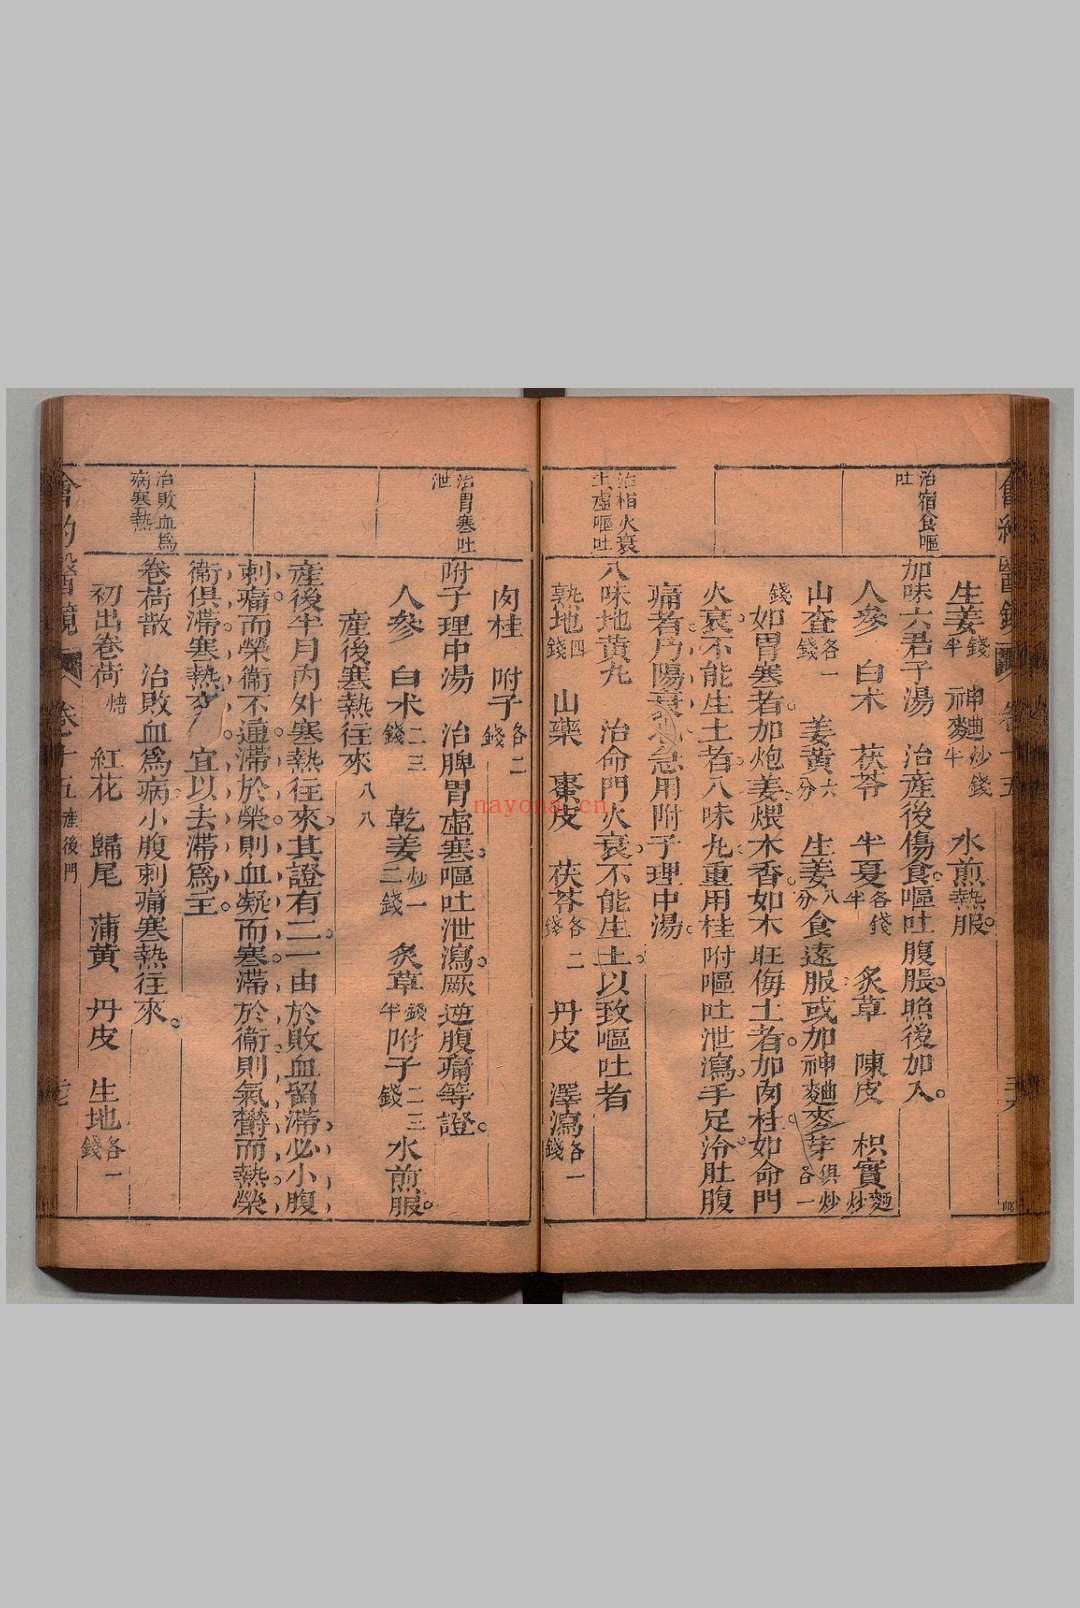 治宿食嘔
吐
治相火衰
土虛嘔吐
生姜錢半 神麯炒錢半 水煎熱服
加味六君子湯 治產後傷食嘔吐腹脹照後加入
人參 白朮 茯苓 半夏各錢半 炙草 陳皮 枳實麵炒
山查各一錢 姜黄六分 生姜八分 食遠服或加神麯麥芽俱炒各一
錢 如胃寒者加炮姜煨木香如木旺侮土者加肉桂如命門
火衰不能生土者八味丸重用桂附嘔吐泄瀉手足冷肚腹
痛者乃陽衰急用附子理中湯
八味地黄丸 治命門火衰不能生土以致嘔吐者
熟地四錢 山藥 棗皮 茯苓各二錢 丹皮 澤瀉各一錢
治胃寒吐
泄
治敗血爲
病寒熱
肉桂 附子各二錢
附子理中湯 治脾胃虛寒嘔吐泄瀉厥逆腹痛等證
人參 白朮二三錢 乾姜炒一二錢 炙草錢半 附子二三錢 水煎服
產後寒熱往來 八八
產後半月內外寒熱往來其證有二一由於敗血留滯必小腹
刺痛而榮衞不通滯於榮則血凝而寒滯於衞則氣鬱而熱榮
衞俱滯寒熱交 宜以去滯爲主
卷荷散 治敗血爲病小腹刺痛寒熱往來
初出卷荷焙 紅花 歸尾 蒲黄 丹皮 生地各一錢
會約醫鏡 卷十五 產後門
nayona.cn